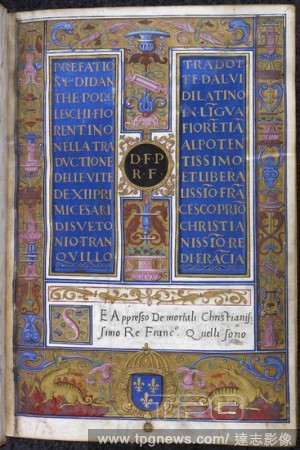 PREFATIO
NE DI DAN
THE POPO
LESCHI FIO
RENTINO
NELLA TRA
DVCTIONE
DELLE VITE
DE XII PRI
MI CESARI
DI SVETO
NIO TRAN
QVILLO
D·F·P
R·F·
TRADOT
TE DAL VI
DI LATINO
IN LĪGVA
FIORĒTIA
AL POTEN
TISSIMO
ET LIBERA
LISSIO FRA
CESCO PRĪO
CHRISTIA
NISSIO RE
DI FRĀCIA
SE Appresso De mortali Christianis=
simo Re Franc°. Quelli sono
TPG
www.tpgnews.com/達志影像